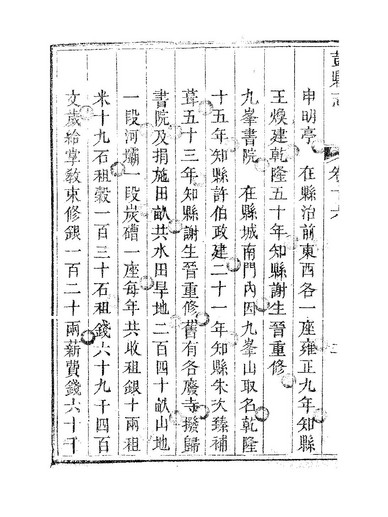 彭縣志
卷十六
申明亭　在縣治前東西各一座雍正九年知縣
王煥建乾隆五十年知縣謝生晉重修
九峯書院　在縣城南門內因九峯山取名乾隆
十五年知縣許伯政建二十一年知縣朱次臻補
葺五十三年知縣謝生晉重修舊有各廢寺撥歸
書院及捐施田畝共水田旱地二百四十畝山地
一段河壩一段炭磧一座每年共收租銀十兩租
米十九石租穀一百三十石租錢六十九千四百
文歲給掌敎束修銀一百二十兩薪費錢六十千